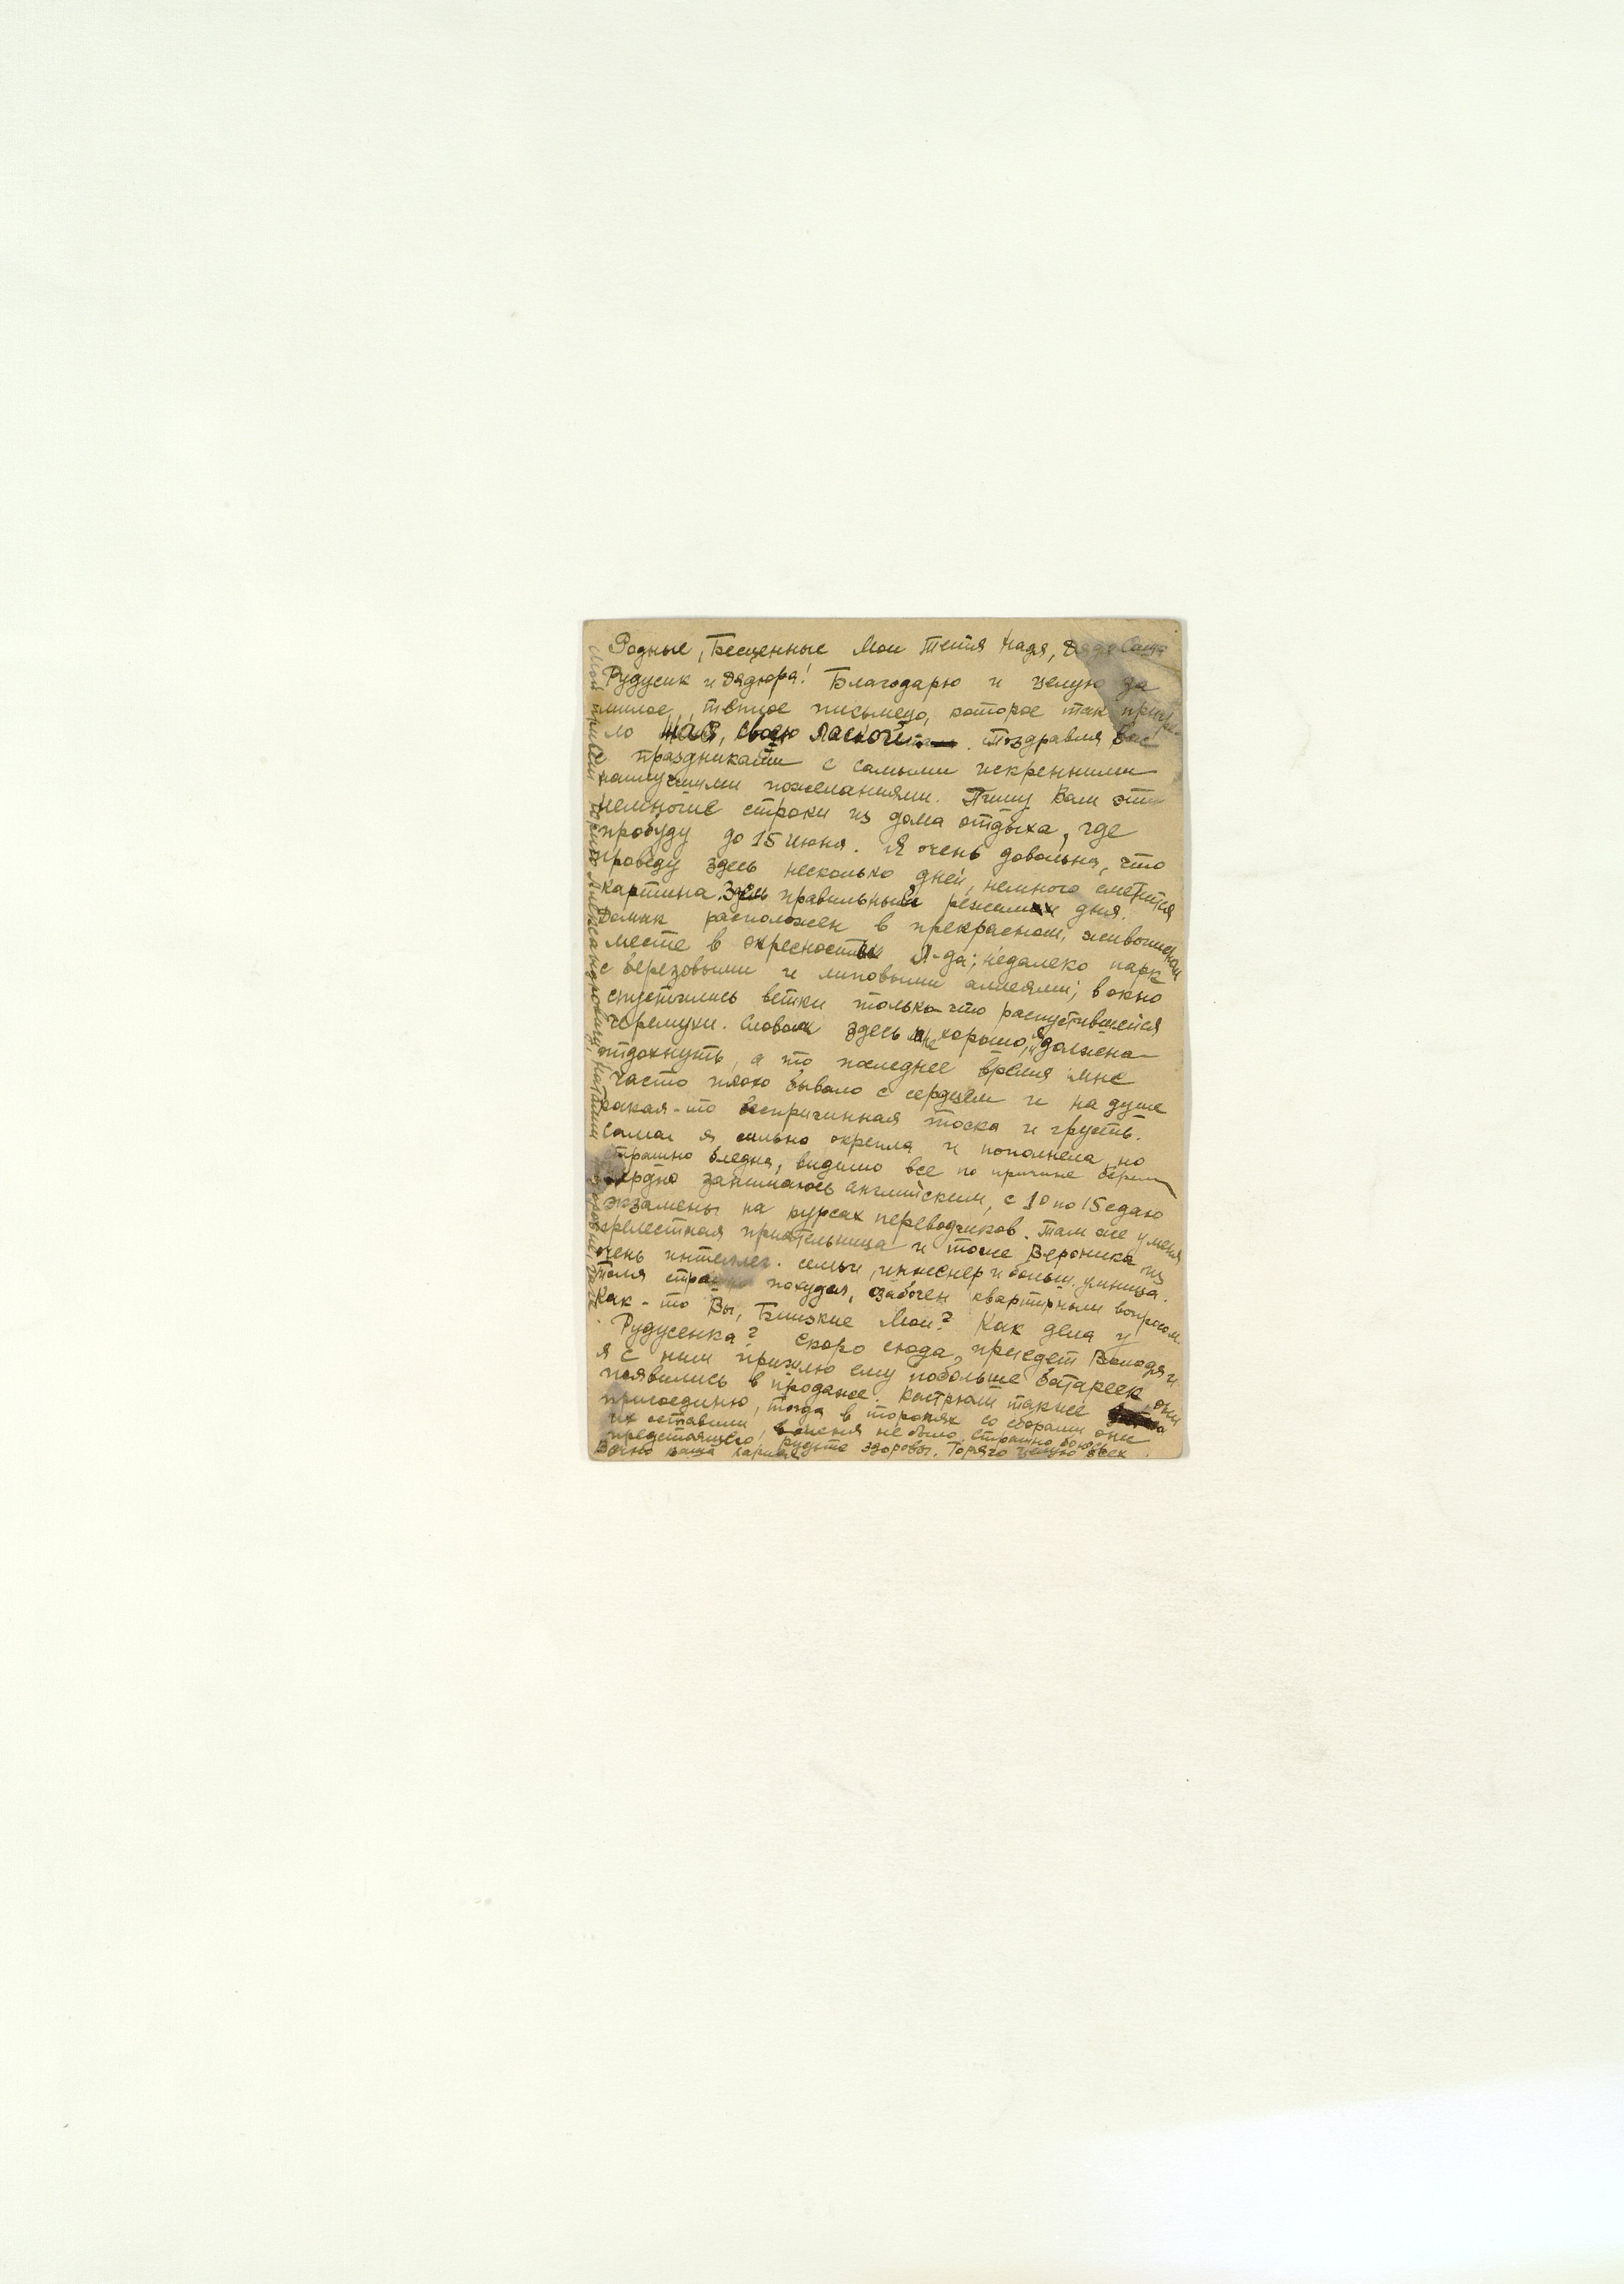 Родные, Бесценные Мои Тетя Надя, Дядя Саша
Рудусик и Дядюра! Благодарю и целую за
милое, теплое письмецо, которое так пригре-
ло нас, своею лаской. Поздравляю Вас
с праздниками с самыми искренними
наилучшими пожеланиями. Пишу Вам эти
немногие строки из дома отдыха, где
пробуду до 15 июня. Я очень довольна, что
проведу здесь несколько дней, немного сменится
картина. Здесь правильный режим дня.
Домик расположен в прекрасном, живописном
месте в окресностях Л-да; недалеко парк
с березовыми и липовыми аллеями; в окно
спустились ветки только-что распустившейся
черемухи. Словом здесь мне хорошо, я должна
отдохнуть, а то последнее время мне
часто плохо бывало с сердцем и на душе
какая-то беспричинная тоска и грусть.
Сама я сильно окрепла и пополнела, но
страшно бледна, видимо все по причине
усердно занимаюсь английским, с 10 по 15 сдаю
экзамены на курсах переводчиков. Там же у меня
прелестная приятельница и тоже Вероника из
очень интеллег. семьи, инженер и больш. умница.
Толя страшно похудел, озабочен квартирным вопросом.
Как-то Вы, Близкие Мои? Как дела у
Рудусенка? Скоро сюда приедет Володя и
я с ним пришлю ему побольше батареек, они
появились в продаже. Кастрюли также
присоединю, тогда в торопях со сборами они
их оставили, времени не было. Страшно боюсь
предстоящего. Будьте здоровы. Горячо целую всех
Вечно ваша
Мой привет Юрию Александровичу, Наталии